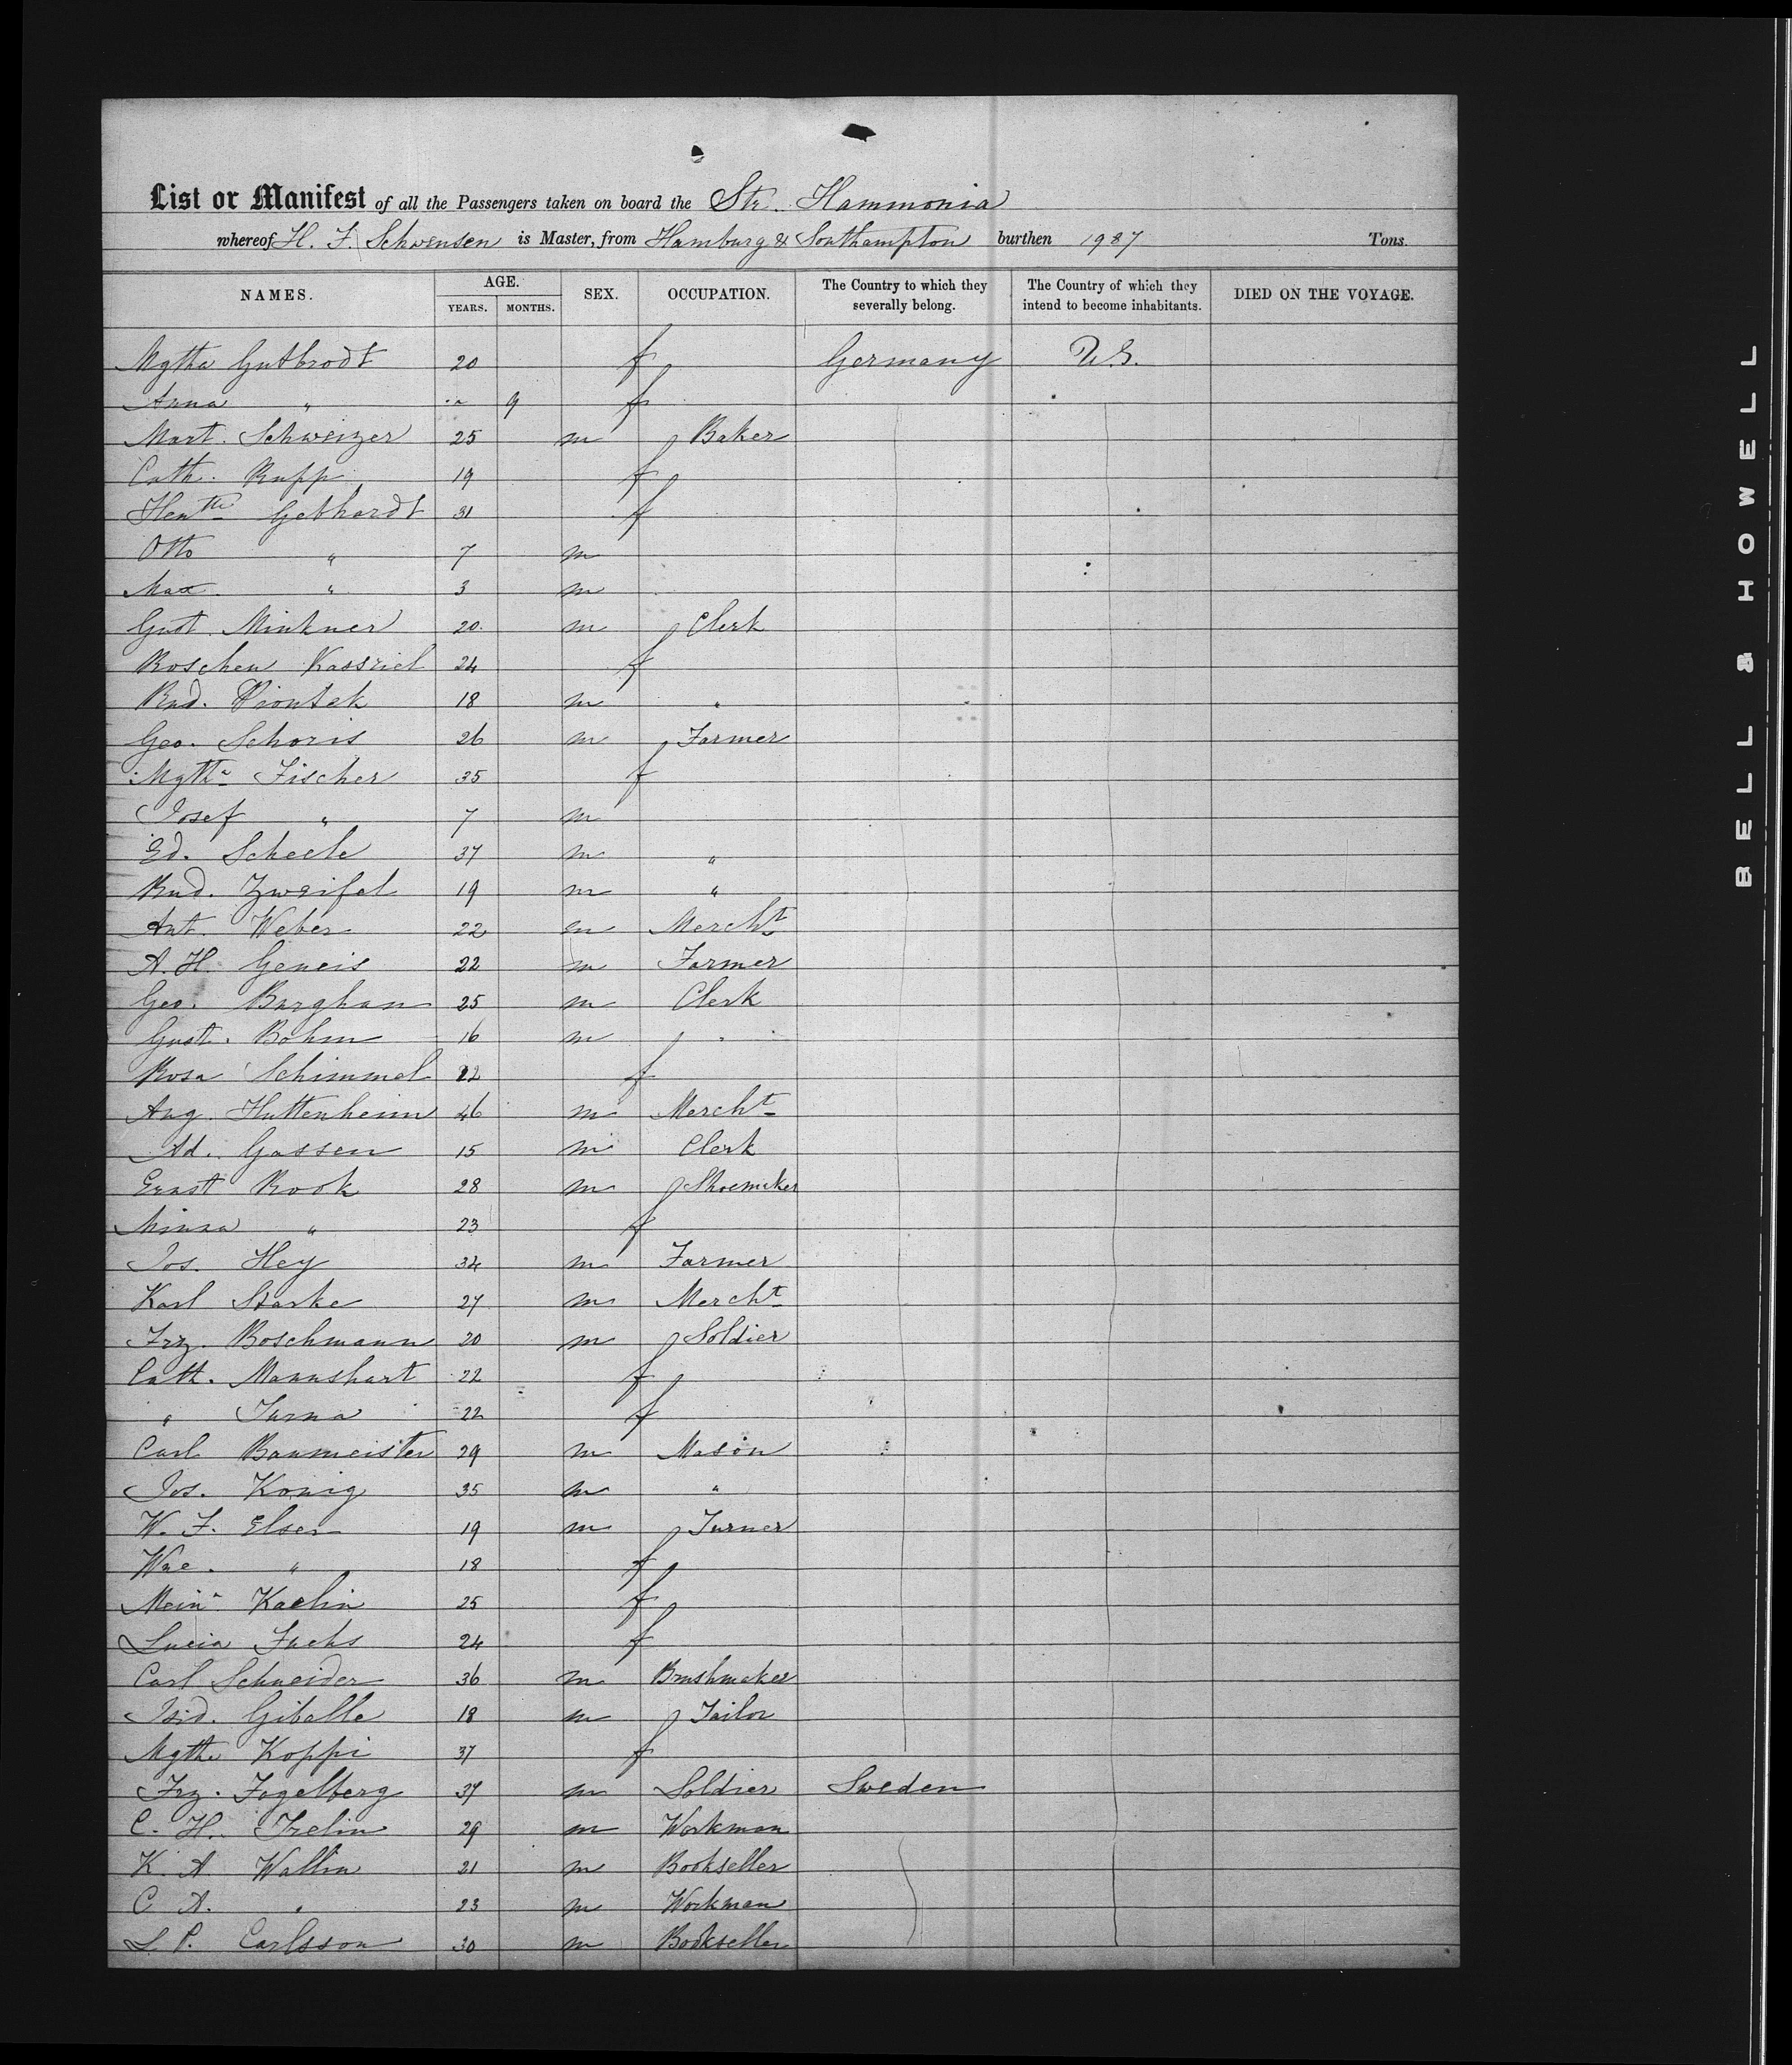 List or Manifest of all the Passengers taken on board the Str. Hammonia
whereof H. F. Schwensen is Master, from Hamburg & Southampton burthen 1987 Tons.
NAMES. AGE. YEARS. MONTHS. SEX. OCCUPATION. The Country to which they severally belong. The Country of which they intend to become inhabitants. DIED ON THE VOYAGE.
Mgtha Gutbrodt 20 f Germany U.S.
Anna " 9 f
Mart. Schweizer 25 m Baker
Cath. Rupp 19 f
Hentte Gebhardt 31 f
Otto " 7 m
Max " 3 m
Gust. Minkner 20 m Clerk
Roschen Kassriel 24 f
Rud. Piontek 18 m "
Geo. Schoris 26 m Farmer
Mgtha Fischer 35 f
Josef " 7 m
Ed. Scheele 37 m "
Rud. Zweifel 19 m "
Ant. Weber 22 m Mercht
A. H. Geneis 22 m Farmer
Geo. Barghan 25 m Clerk
Gust. Bohm 16 m "
Rosa Schimmel 22 f
Aug. Huttenheim 46 m Mercht
Ad. Gassen 15 m Clerk
Ernst Rook 28 m Shoemaker
Minna " 23 f
Jos. Hey 34 m Farmer
Karl Starke 27 m Mercht
Frz. Boschmann 20 m Soldier
Cath. Mannshart 22 f
" Turna 22 f
Carl Baumeister 29 m Mason
Jos. Konig 35 m "
W. F. Elser 19 m Turner
Wne. " 18 f
Mein. Kaelin 25 f
Lucia Fuchs 24 f
Carl Schneider 36 m Brushmaker
Isid. Giballe 18 m Tailor
Mgtha Koppi 37 f
Frz. Fogelberg 37 m Soldier Sweden
C. H. Trelin 29 m Workman
K. A Wallin 21 m Bookseller
C A. " 23 m Workman
L. P. Carlsson 30 m Bookseller
BELL & HOWELL